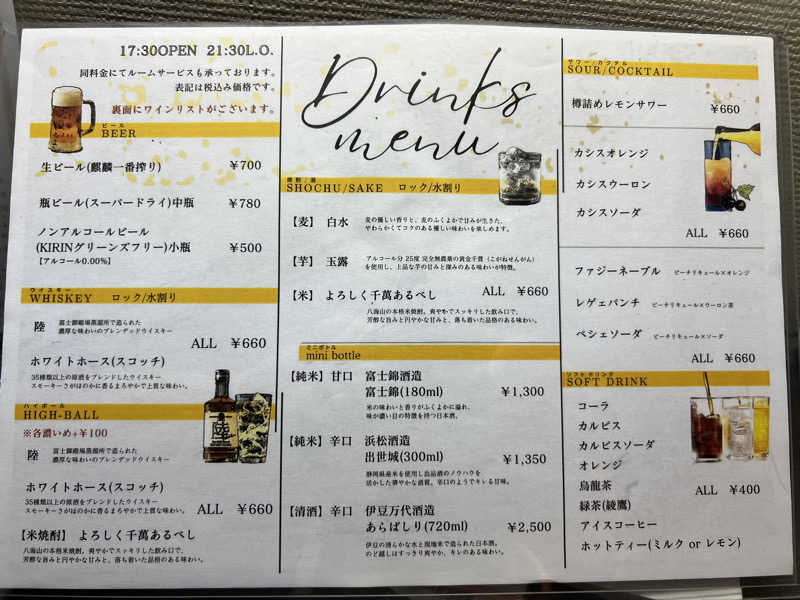 17:30OPEN 21:30L.O.
同料金にてルームサービスも承っております。
表記は税込み価格です。
裏面にワインリストがございます。
ビール
BEER
生ビール(麒麟一番搾り) ￥700
瓶ビール(スーパードライ)中瓶 ￥780
ノンアルコールビール
(KIRINグリーンズフリー)小瓶 ￥500
【アルコール0.00%】
ウイスキー
WHISKEY ロック/水割り
陸 富士御殿場蒸溜所で造られた
濃厚な味わいのブレンデッドウイスキー
ALL ￥660
ホワイトホース(スコッチ)
35種類以上の原酒をブレンドしたウイスキー
スモーキーさがほのかに香るまろやかで上質な味わい。
ハイボール
HIGH-BALL
※各濃いめ+￥100
陸 富士御殿場蒸溜所で造られた
濃厚な味わいのブレンデッドウイスキー
ホワイトホース(スコッチ)
35種類以上の原酒をブレンドしたウイスキー
スモーキーさがほのかに香るまろやかで上質な味わい。
ALL ￥660
【米焼酎】 よろしく千萬あるべし
八海山の本格米焼酎。爽やかでスッキリした飲み口で、
芳醇な旨みと円やかな甘みと、落ち着いた品格のある味わい。
Drinks
menu
焼酎/酒
SHOCHU/SAKE ロック/水割り
【麦】 白水 麦の優しい香りと、麦のふくよかで甘みが生きた、
やわらかくてコクのある優しい味わいを楽しめます。
【芋】 玉露 アルコール分 25度 完全無農薬の黄金千貫(こがねせんがん)
を使用し、上品な芋の甘みと深みのある味わいが特徴。
【米】 よろしく千萬あるべし ALL ￥660
八海山の本格米焼酎。爽やかでスッキリした飲み口で、
芳醇な旨みと円やかな甘みと、落ち着いた品格のある味わい。
ミニボトル
mini bottle
【純米】甘口 富士錦酒造
富士錦(180ml) ￥1,300
米の味わいと香りがふくよかに溢れ、
味が濃い目の特徴を持つ日本酒。
【純米】辛口 浜松酒造
出世城(300ml) ￥1,350
静岡県産米を使用し出品酒のノウハウを
活かした華やかな酒質。辛口のようでキレる甘味。
【清酒】辛口 伊豆万代酒造
あらばしり(720ml) ￥2,500
伊豆の清らかな水と現地米で造られた日本酒。
のど越しはすっきり爽やか、キレのある味わい。
サワー/カクテル
SOUR/COCKTAIL
樽詰めレモンサワー ￥660
カシスオレンジ
カシスウーロン
カシスソーダ
ALL ￥660
ファジーネーブル ピーチリキュール×オレンジ
レゲエパンチ ピーチリキュール×ウーロン茶
ペシェソーダ ピーチリキュール×ソーダ
ALL ￥660
ソフトドリンク
SOFT DRINK
コーラ
カルピス
カルピスソーダ
オレンジ
烏龍茶
ALL ￥400
緑茶(綾鷹)
アイスコーヒー
ホットティー(ミルク or レモン)